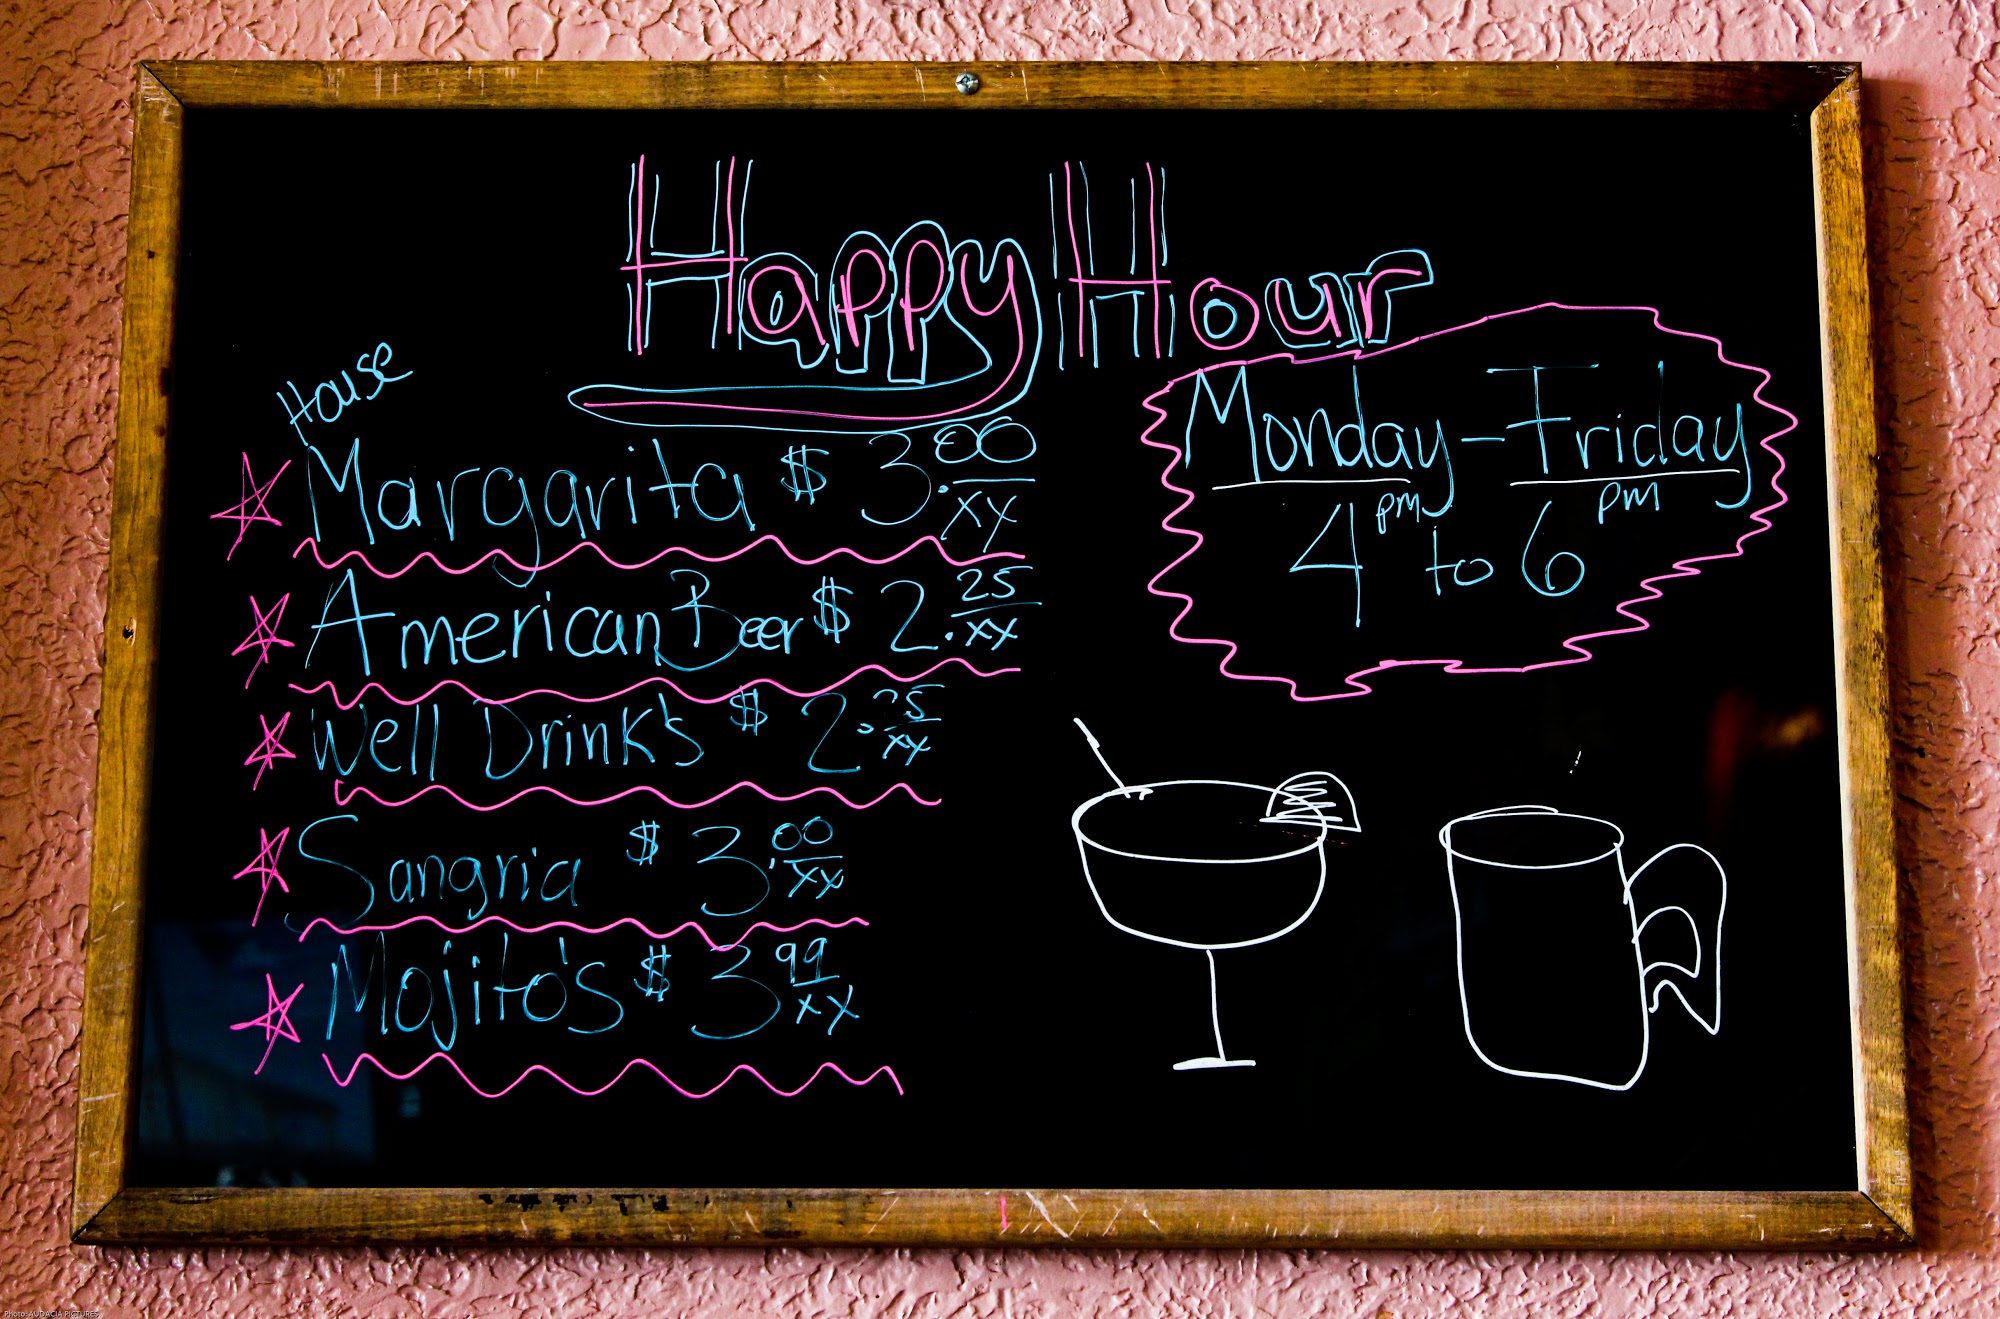 Happy Hour
House
Margarita $ 3.00/xx
American Beer $ 2.25/xx
Well Drink's $ 2.25/xx
Sangria $ 3.00/xx
Mojito's $ 3 99/xx
Monday - Friday
4 pm to 6 pm
Photo: AUDACIA PICTURES